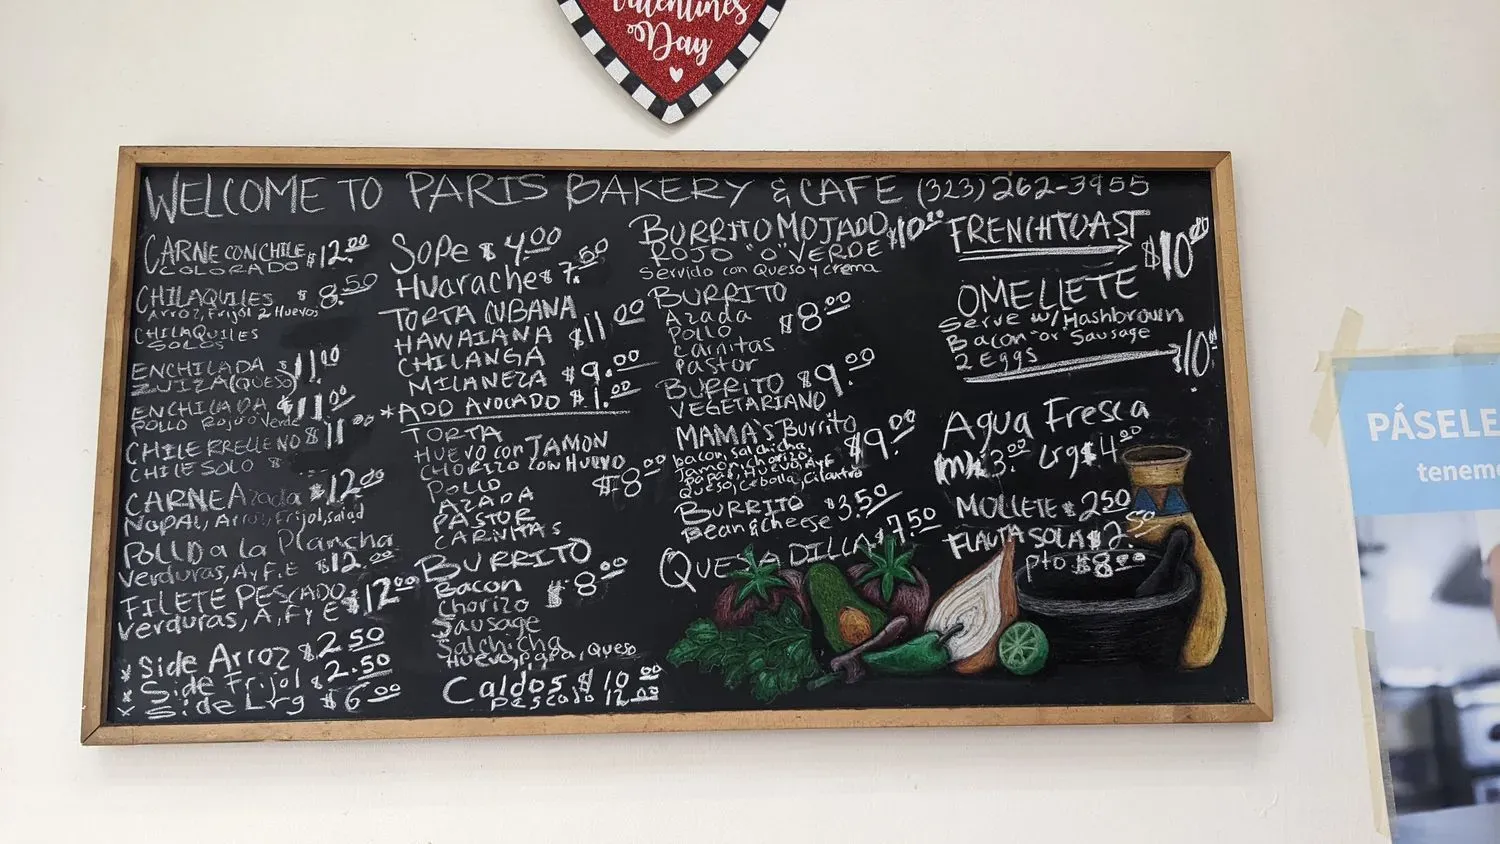 Valentines
Day
WELCOME TO PARIS BAKERY & CAFE (323) 262-3955
CARNE CON CHILE $12.00
COLORADO
CHILAQUILES $8.50
Arroz, Frijol 2 Huevos
CHILAQUILES
SOLOS
ENCHILADA $11.00
ZUIZA (QUESO)
ENCHILADA $11.00
POLLO Rojo o Verde
CHILE RRELLENO $11.00
CHILE SOLO $
CARNE Azada $12.00
NOPAL, Arroz, Frijol, Salad
POLLO a la Plancha
Verduras, A y F. E $12.00
FILETE PESCADO $12.00
Verduras, A, F y E
* Side Arroz $2.50
* Side Frijol $2.50
* Side Lrg $6.00
Sope $4.00
Huarache $7.50
TORTA CUBANA
HAWAIANA $11.00
CHILANGA
MILANEZA $9.00
*ADD AVOCADO $1.00
TORTA
HUEVO con JAMON
CHORIZO CON HUEVO
POLLO $8.00
AZADA
PASTOR
CARNITAS
BURRITO
Bacon $8.00
Chorizo
Sausage
Salchicha
Huevo, papa, Queso
Caldos $10.00
pescado 12.00
BURRITO MOJADO $10.00
ROJO "O" VERDE
Servido con Queso y crema
BURRITO
Azada $8.00
Pollo
Carnitas
Pastor
BURRITO $9.00
VEGETARIANO
MAMA'S Burrito $9.00
bacon, salchicha,
Jamon, chorizo,
papas, HUEVO, AyF
Queso, Cebolla, Cilantro
BURRITO $3.50
Bean & cheese
QUESADILLA $7.50
FRENCH TOAST $10.00
OMELIETE
Serve w/ Hashbrown
Bacon "or" Sausage
2 EGGS $10.00
Agua Fresca
3.00 Lrg $4.00
MOLLETE $2.50
FLAUTA SOLA $2.50
pto $8.00
PÁSELE